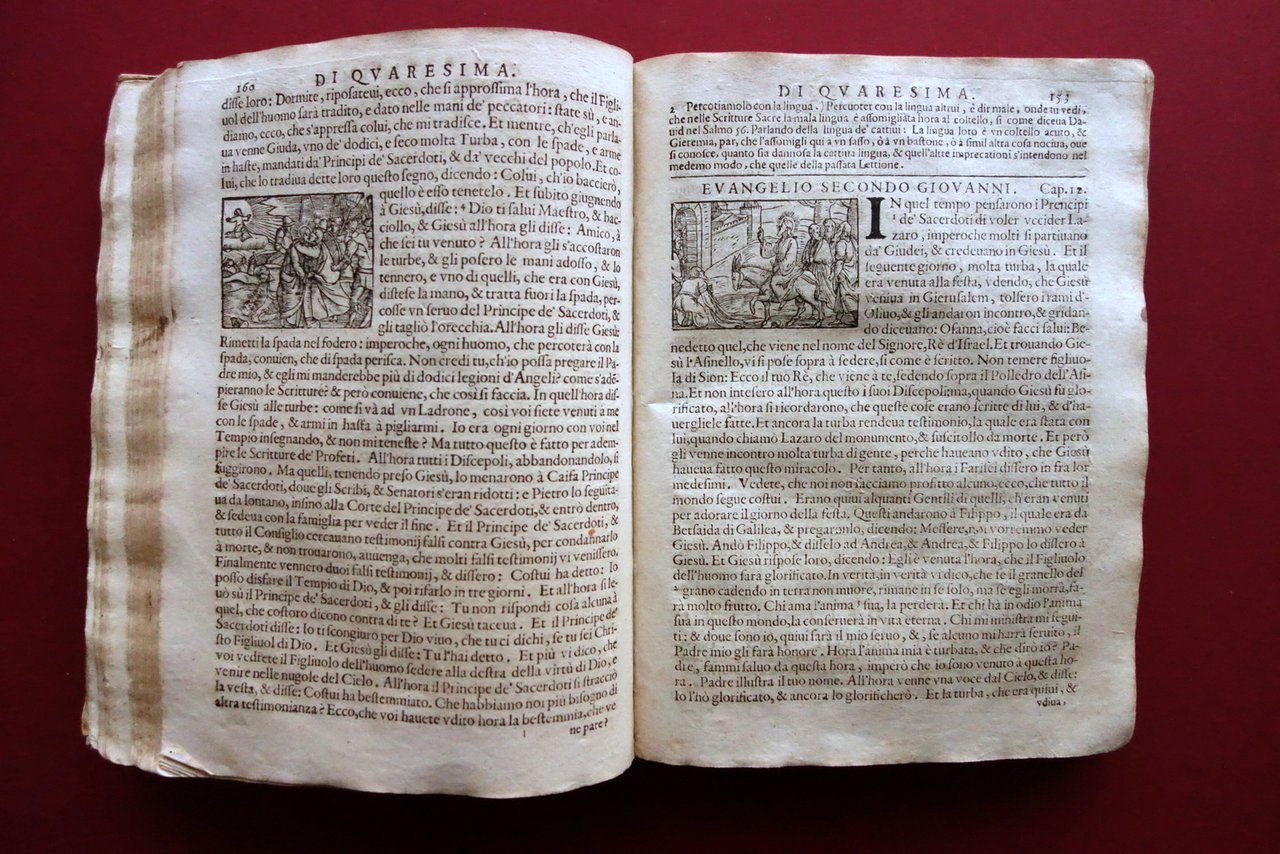 160
DI QVARESIMA.
disse loro: Dormite, riposateui, ecco, che si approssima l'hora, che il Figli-
uol dell'huomo sarà tradito, e dato nelle mani de' peccatori: state sù, e an-
diamo, ecco, che s'appressa colui, che mi tradisce. Et mentre, ch'egli parla-
ua venne Giuda, vno de' dodici, e seco molta Turba, con le spade, e arme
in haste, mandati da' Principi de' Sacerdoti, & da' vecchi del popolo. Et co-
lui, che lo tradiua dette loro questo segno, dicendo: Colui, ch'io baccierò,
quello è esso tenetelo. Et subito giugnendo
à Giesù, disse: Dio ti salui Maestro, & bac-
ciollo, & Giesù all'hora gli disse: Amico, à
che sei tu venuto? All'hora gli s'accostaron
le turbe, & gli posero le mani adosso, & lo
tennero, e vno di quelli, che era con Giesù,
distese la mano, & tratta fuori la spada, per-
cosse vn seruo del Principe de' Sacerdoti, &
gli tagliò l'orecchia. All'hora gli disse Giesù:
Rimetti la spada nel fodero: imperoche, ogni huomo, che percoterà con la
spada, conuien, che di spada perisca. Non credi tu, ch'io possa pregare il Pa-
dre mio, & egli mi manderebbe più di dodici legioni d'Angeli? come s'adé-
pieranno le Scritture? & però conuiene, che così si faccia. In quell'hora dis-
se Giesù alle turbe: come si và ad vn Ladrone, così voi siete venuti a me
con le spade, & armi in hasta à pigliarmi. Io era ogni giorno con voi nel
Tempio insegnando, & non mi teneste? Ma tutto questo è fatto per adem-
pire le Scritture de' Profeti. All'hora tutti i Discepoli, abbandonandolo, si
fuggirono. Ma quelli, tenendo preso Giesù, lo menarono à Caifa Principe
de' Sacerdoti, doue gli Scribi, & Senatori s'eran ridotti: e Pietro lo seguita-
ua da lontano, insino alla Corte del Principe de' Sacerdoti, & entrò dentro,
& sedeua con la famiglia per veder il fine. Et il Principe de' Sacerdoti, &
tutto il Consiglio cercauano testimonij falsi contra Giesù, per condannarlo
à morte, & non trouarono, auuenga, che molti falsi testimonij vi venissero.
Finalmente vennero duoi falsi testimonij, & dissero: Costui ha detto: Io
posso disfare il Tempio di Dio, & poi rifarlo in tre giorni. Et all'hora si le-
uò sù il Principe de' Sacerdoti, & gli disse: Tu non rispondi cosa alcuna à
quel, che costoro dicono contra di te? Et Giesù taceua. Et il Principe de'
Sacerdoti disse: Io ti scongiuro per Dio viuo, che tu ci dichi, se tu sei Chri-
sto Figliuol di Dio. Et Giesù gli disse: Tu l'hai detto. Et più vi dico, che
voi vedrete il Figliuolo dell'huomo sedere alla destra della virtù di Dio, e
venire nelle nugole del Cielo. All'hora il Principe de' Sacerdoti si stracciò
la vesta, & disse: Costui ha bestemmiato. Che habbiamo noi più bisogno di
altra testimonianza? Ecco, che voi hauete vdito hora la bestemmia, che ve
ne pare?
DI QVARESIMA.
153
2 Percotiamolo con la lingua.) Percuotet con la lingua altrui, è dir male, onde tu vedi,
che nelle Scritture Sacre la mala lingua è assomigliata hora al coltello, si come diceua Da-
uid nel Salmo 56. Parlando della lingua de' cattiui: La lingua loro è vn coltello acuto, &
Gieremia, par, che l'assomigli qui à vn sasso, ò à vn bastone, ò à simil altra cosa nociua, oue
si conosce, quanto sia dannosa la cattiua lingua, & quell'altre imprecationi s'intendono nel
medemo modo, che quelle della passata Lettione.
EVANGELIO SECONDO GIOVANNI. Cap. 12.
IN quel tempo pensarono i Prencipi
1 de' Sacerdoti di voler vccider La-
zaro, imperoche molti si partiuano
da' Giudei, & credeuano in Giesù. Et il
seguente giorno, molta turba, la quale
era venuta alla festa, vdendo, che Giesù
veniua in Gierusalem, tolsero i rami d'-
Oliuo, & gli andaron incontro, & gridan-
do diceuano: Osanna, cioè facci salui: Be-
nedetto quel, che viene nel nome del Signore, Rè d'Israel. Et trouando Gie-
sù l'Asinello, vi si pose sopra à sedere, si come è scritto. Non temere figliuo-
la di Sion: Ecco il tuo Rè, che viene à te, sedendo sopra il Polledro dell'Asi-
na. Et non intesero all'hora questo i suoi Discepoli: ma, quando Giesù fu glo-
rificato, all'hora si ricordarono, che queste cose erano scritte di lui, & d'ha-
uergliele fatte. Et ancora la turba rendeua testimonio, la quale era stata con
lui, quando chiamò Lazaro del monumento, & suscitollo da morte. Et però
gli venne incontro molta turba di gente, perche haueano vdito, che Giesù
haueua fatto questo miracolo. Per tanto, all'hora i Farisei dissero in fra lor
medesimi. Vedete, che noi non facciamo profitto alcuno: ecco, che tutto il
mondo segue costui. Erano quiui alquanti Gentili di quelli, ch'eran venuti
per adorare il giorno della festa. Questi andarono à Filippo, il quale era da
Betsaida di Galilea, & pregaronlo, dicendo: Messere, noi vorremmo veder
Giesù. Andò Filippo, & disselo ad Andrea, & Andrea, & Filippo lo dissero à
Giesù. Et Giesù rispose loro, dicendo: Egli è venuta l'hora, che il Figliuolo
dell'huomo sarà glorificato. In verità, in verità vi dico, che se il granello del
2 grano cadendo in terra non muore, rimane in se solo, ma se egli morrà, fa-
rà molto frutto. Chi ama l'anima sua, la perderà. Et chi hà in odio l'anima
sua in questo mondo, la conseruerà in vita eterna. Chi mi ministra mi segui-
ti: & doue sono io, quiui sarà il mio seruo, &, se alcuno mi harrà seruito, il
Padre mio gli farà honore. Hora l'anima mia è turbata, & che dirò io? Pa-
dre, fammi saluo da questa hora, imperò che io sono venuto à questa ho-
ra. Padre illustra il tuo nome. All'hora venne vna voce dal Cielo, & disse:
Io l'hò glorificato, & ancora lo glorificherò. Et la turba, che era quiui, &
vdiua,